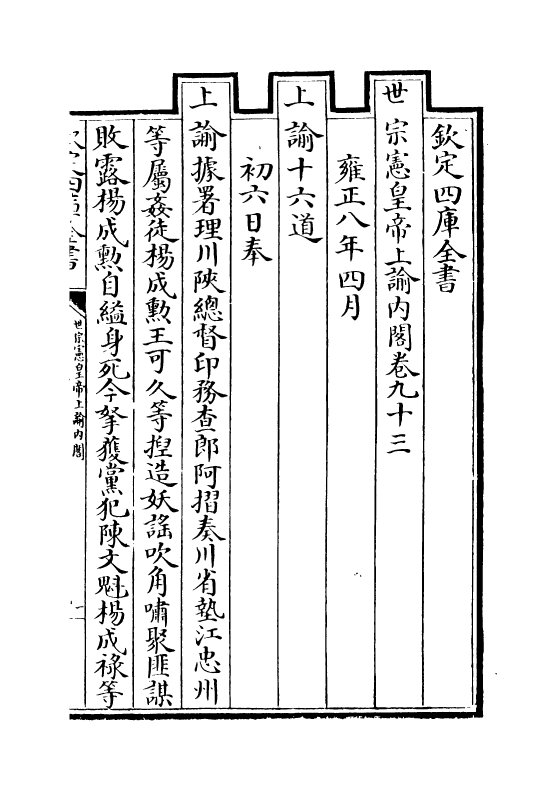 欽定四庫全書
世宗憲皇帝上諭內閣卷九十三
雍正八年四月
上諭十六道
初六日奉
上諭據署理川陝總督印務查郎阿摺奏川省墊江忠州
等屬姦徒楊成勲王可久等揑造妖謠吹角嘯聚匪謀
敗露楊成勲自縊身死今拏獲黨犯陳文魁楊成祿等
欽定四庫全書
世宗憲皇帝上諭內閣
一